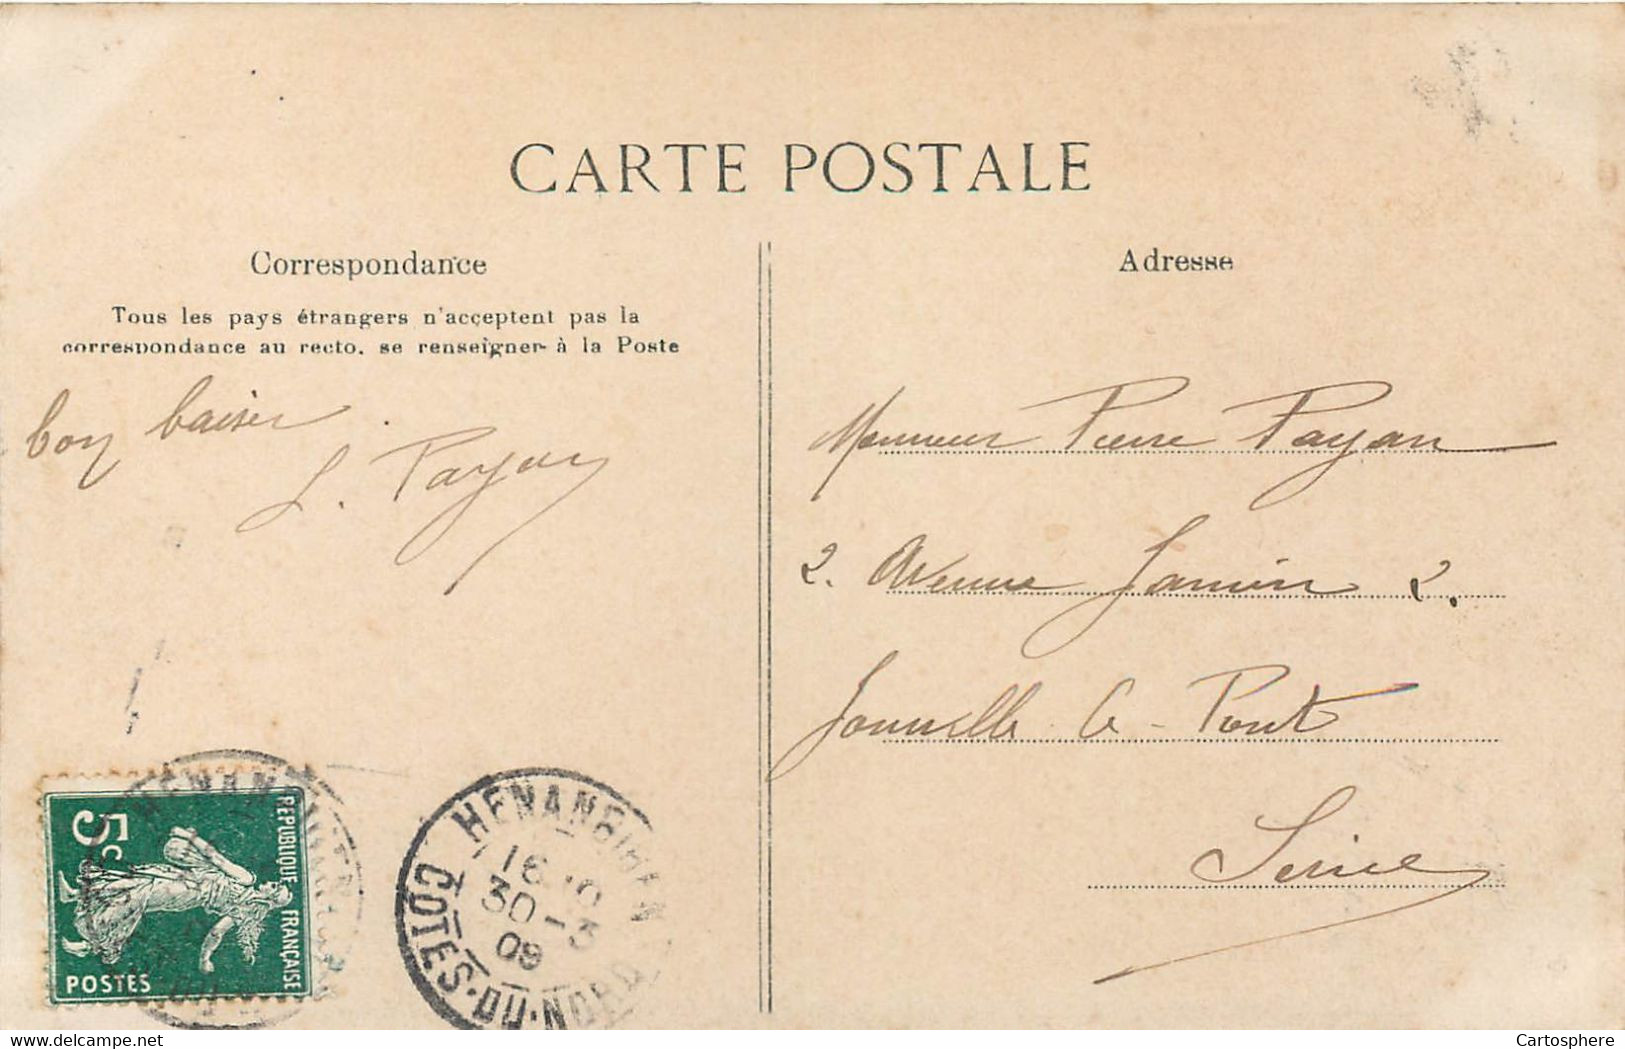 CARTE POSTALE
Correspondance
Tous les pays étrangers n'acceptent pas la
correspondance au recto, se renseigner à la Poste
bon baiser.
L. Payan
Adresse
Monsieur Pierre Payan
2. Avenue Jamin 2.
Joinville-le-Pont
Seine
5c
REPUBLIQUE FRANÇAISE
POSTES
HENANBIHEN
16
30-3
09
COTES-DU-NORD
www.delcampe.net
Cartosphere